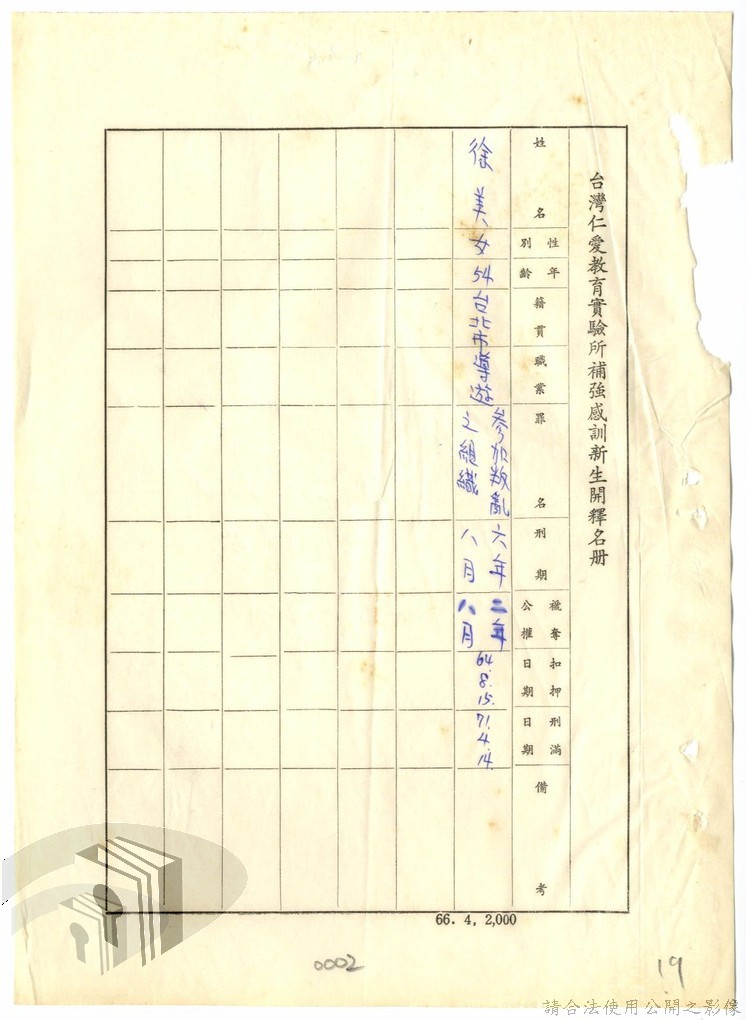 台灣仁愛教育實驗所補強感訓新生開釋名册
姓名
性別
年齡
籍貫
職業
罪名
刑期
褫奪公權
扣押日期
刑滿日期
備考
徐美
女
54
台北市
導遊
參加叛亂之組織
六年八月
二年八月
64.8.15.
71.4.14.
66. 4. 2,000
0002
19
請合法使用公開之影像